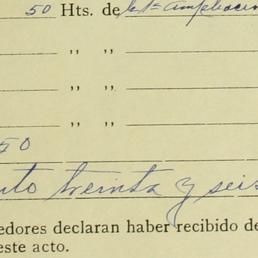 50 Hts. de la 1ª ampliación
,, ,,
,, ,,
,, ,,
50
nto treinta y seis
edores declaran haber recibido de
este acto.